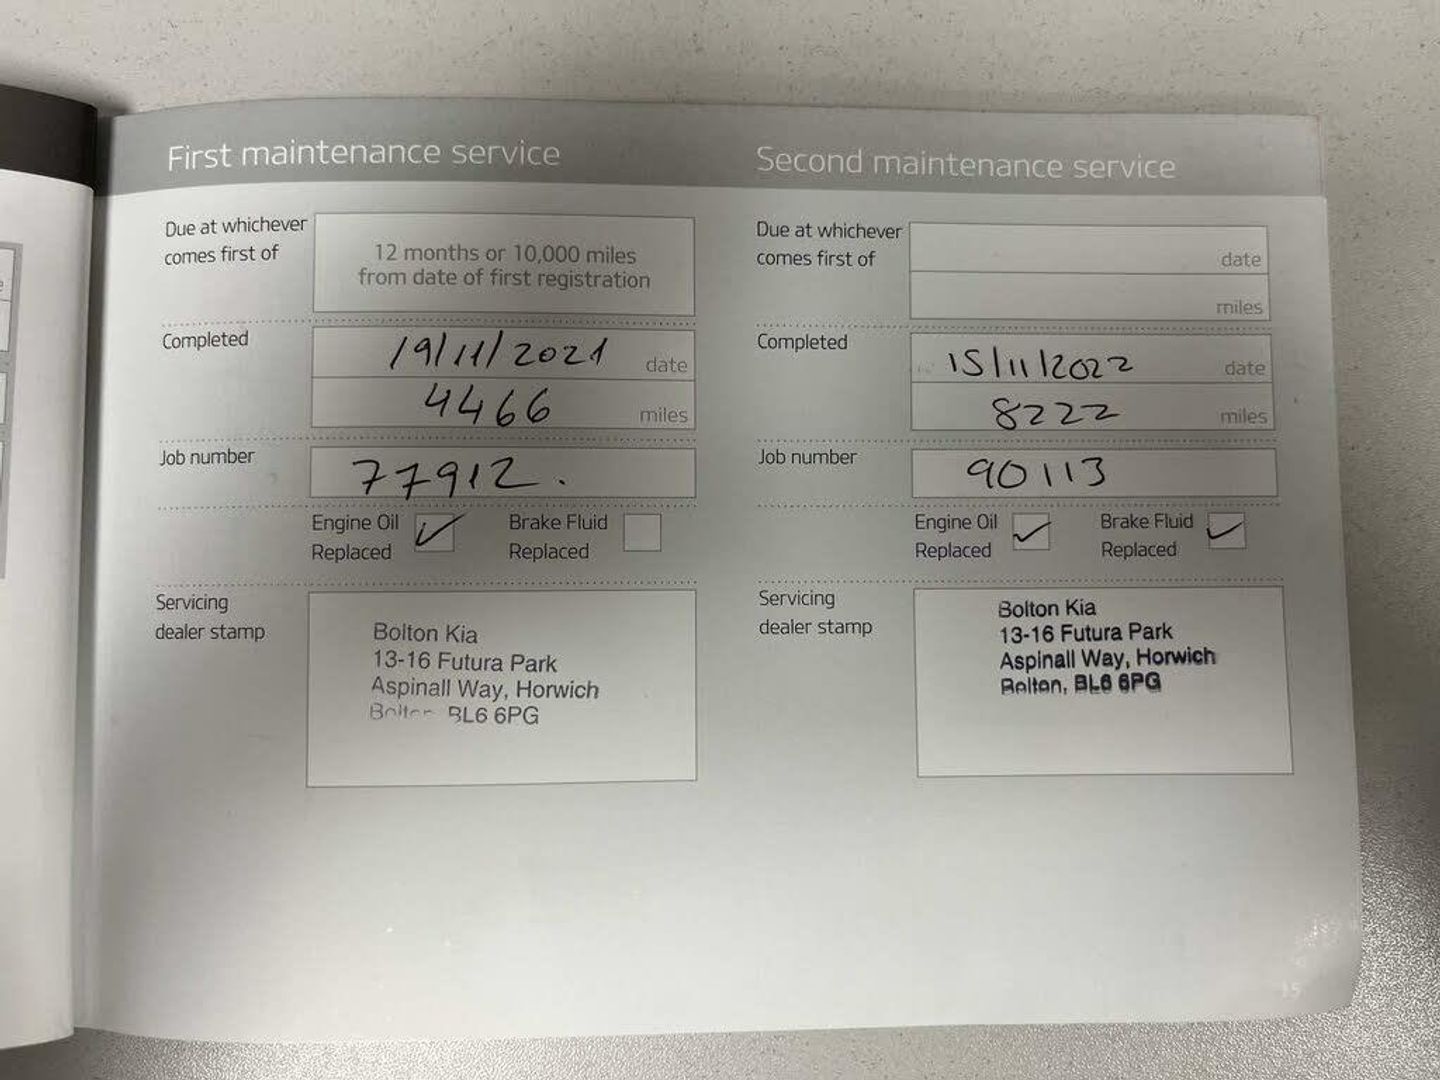 First maintenance service
Due at whichever
comes first of
12 months or 10,000 miles
from date of first registration
Completed
19/11/2021 date
4466 miles
Job number
77912.
Engine Oil
Replaced
Brake Fluid
Replaced
Servicing
dealer stamp
Bolton Kia
13-16 Futura Park
Aspinall Way, Horwich
Bolton BL6 6PG
Second maintenance service
Due at whichever
comes first of
date
miles
Completed
15/11/2022 date
8222 miles
Job number
90113
Engine Oil
Replaced
Brake Fluid
Replaced
Servicing
dealer stamp
Bolton Kia
13-16 Futura Park
Aspinall Way, Horwich
Bolton, BL6 6PG